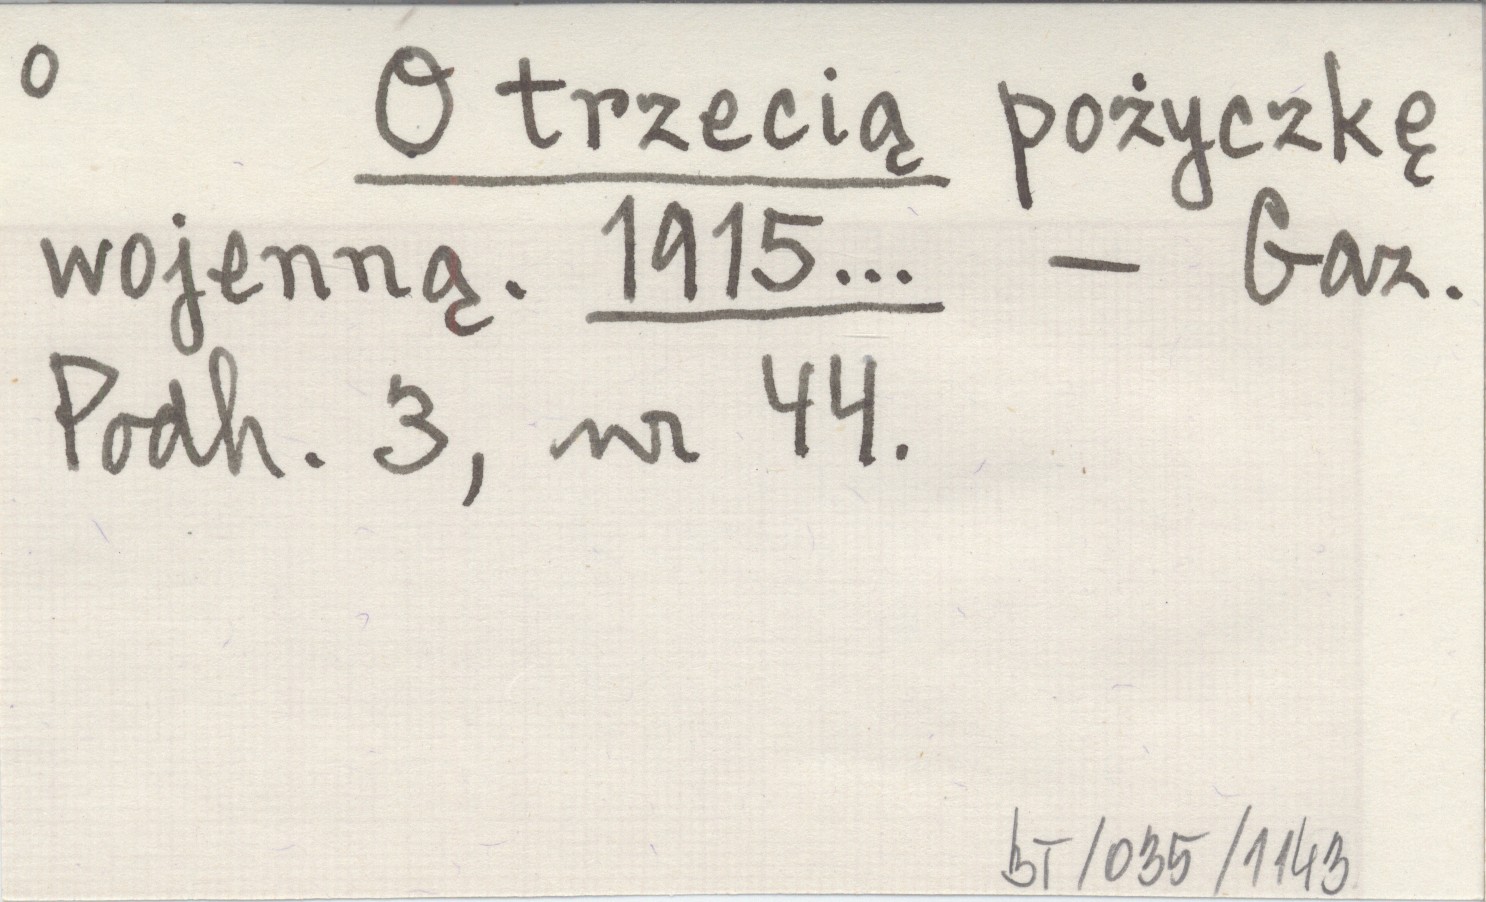 o O trzecią pożyczkę
wojenną. 1915... – Gaz.
Podh. 3, nr 44.
BT/035/1143